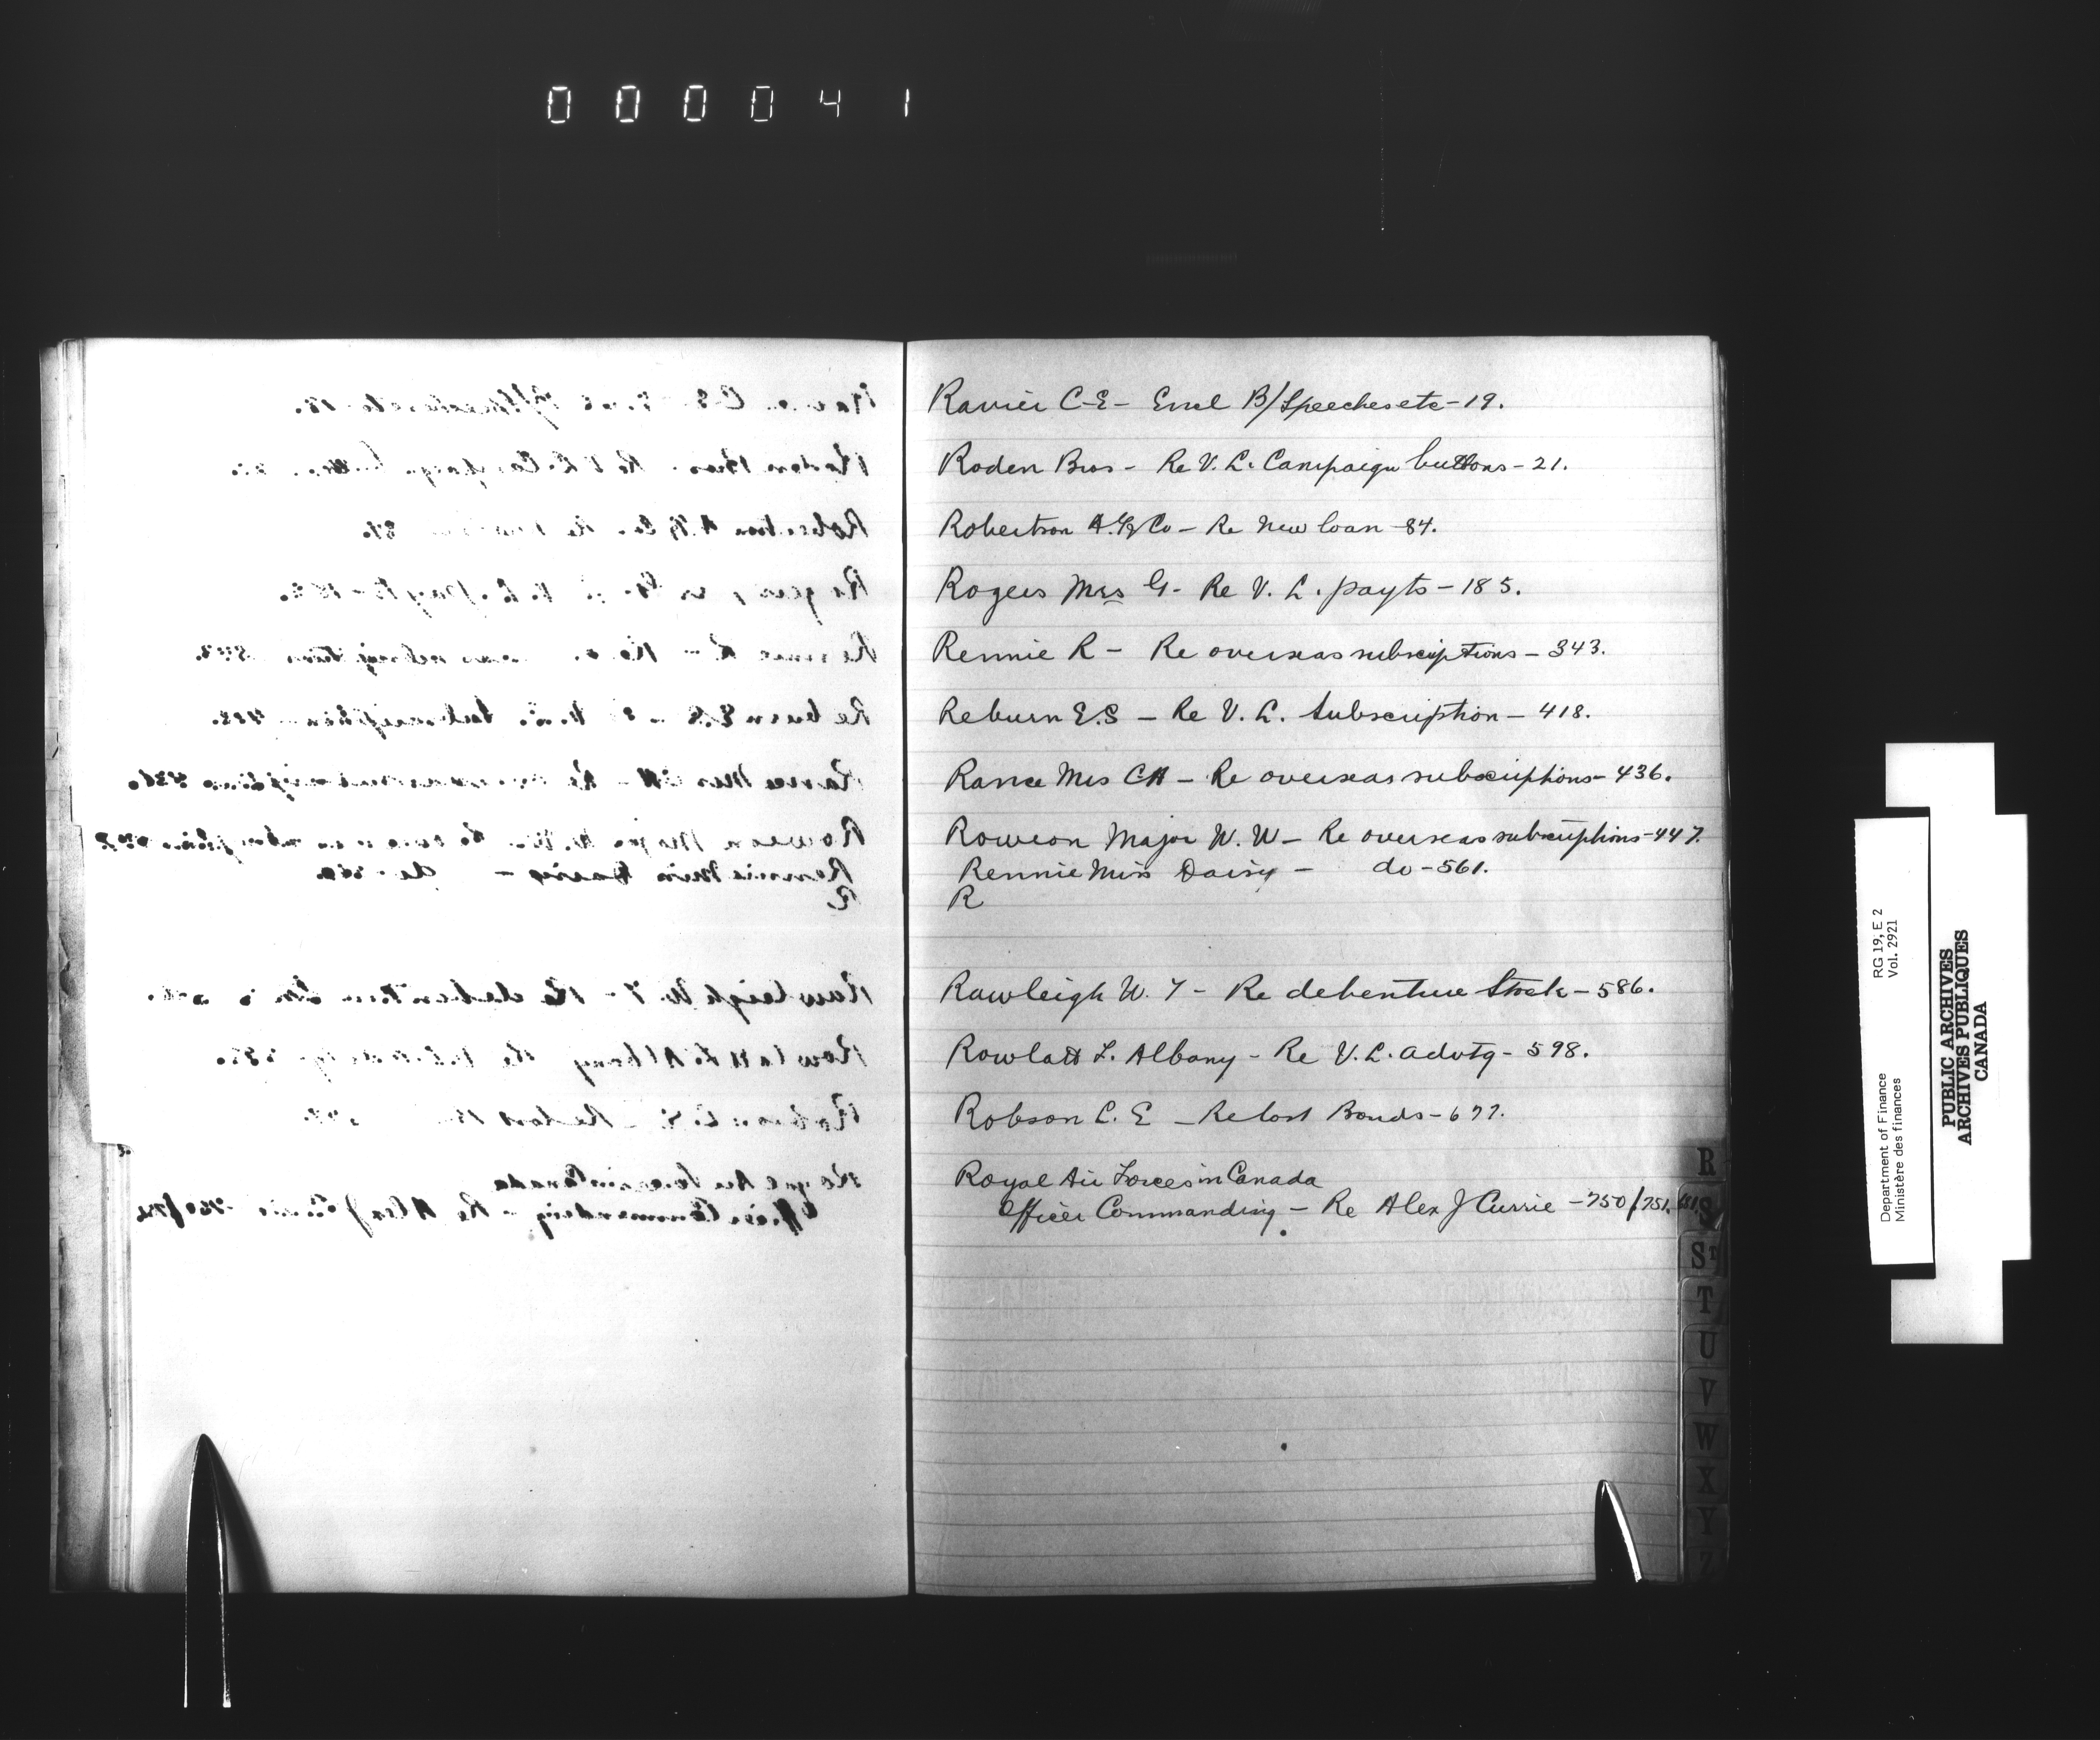 000041
Ravier C-E - Encl B/Speeches etc - 19.
Roden Bros - Re V. L. Campaign buttons - 21.
Robertson A. & Co - Re New loan - 84.
Rogers Mrs G. - Re V. L. payts - 185.
Rennie R - Re overseas subscriptions - 343.
Reburn E.S - Re V. L. Subscription - 418.
Rance Mrs CH - Re overseas subscriptions - 436.
Roweon Major W. W - Re overseas subscriptions - 447.
Rennie Miss Daisy - do - 561.
R
Rawleigh W. T - Re debenture Stock - 586.
Rowlatt F. Albany - Re V. L. advtg - 598.
Robson L. E - Re lost Bonds - 677.
Royal Air Forces in Canada
Officer Commanding - Re Alex J Currie - 750/751.
R
S
ST
T
U
V
W
X
Y
Z
Department of Finance RG 19, E 2
Ministère des finances Vol. 2921
PUBLIC ARCHIVES
ARCHIVES PUBLIQUES
CANADA